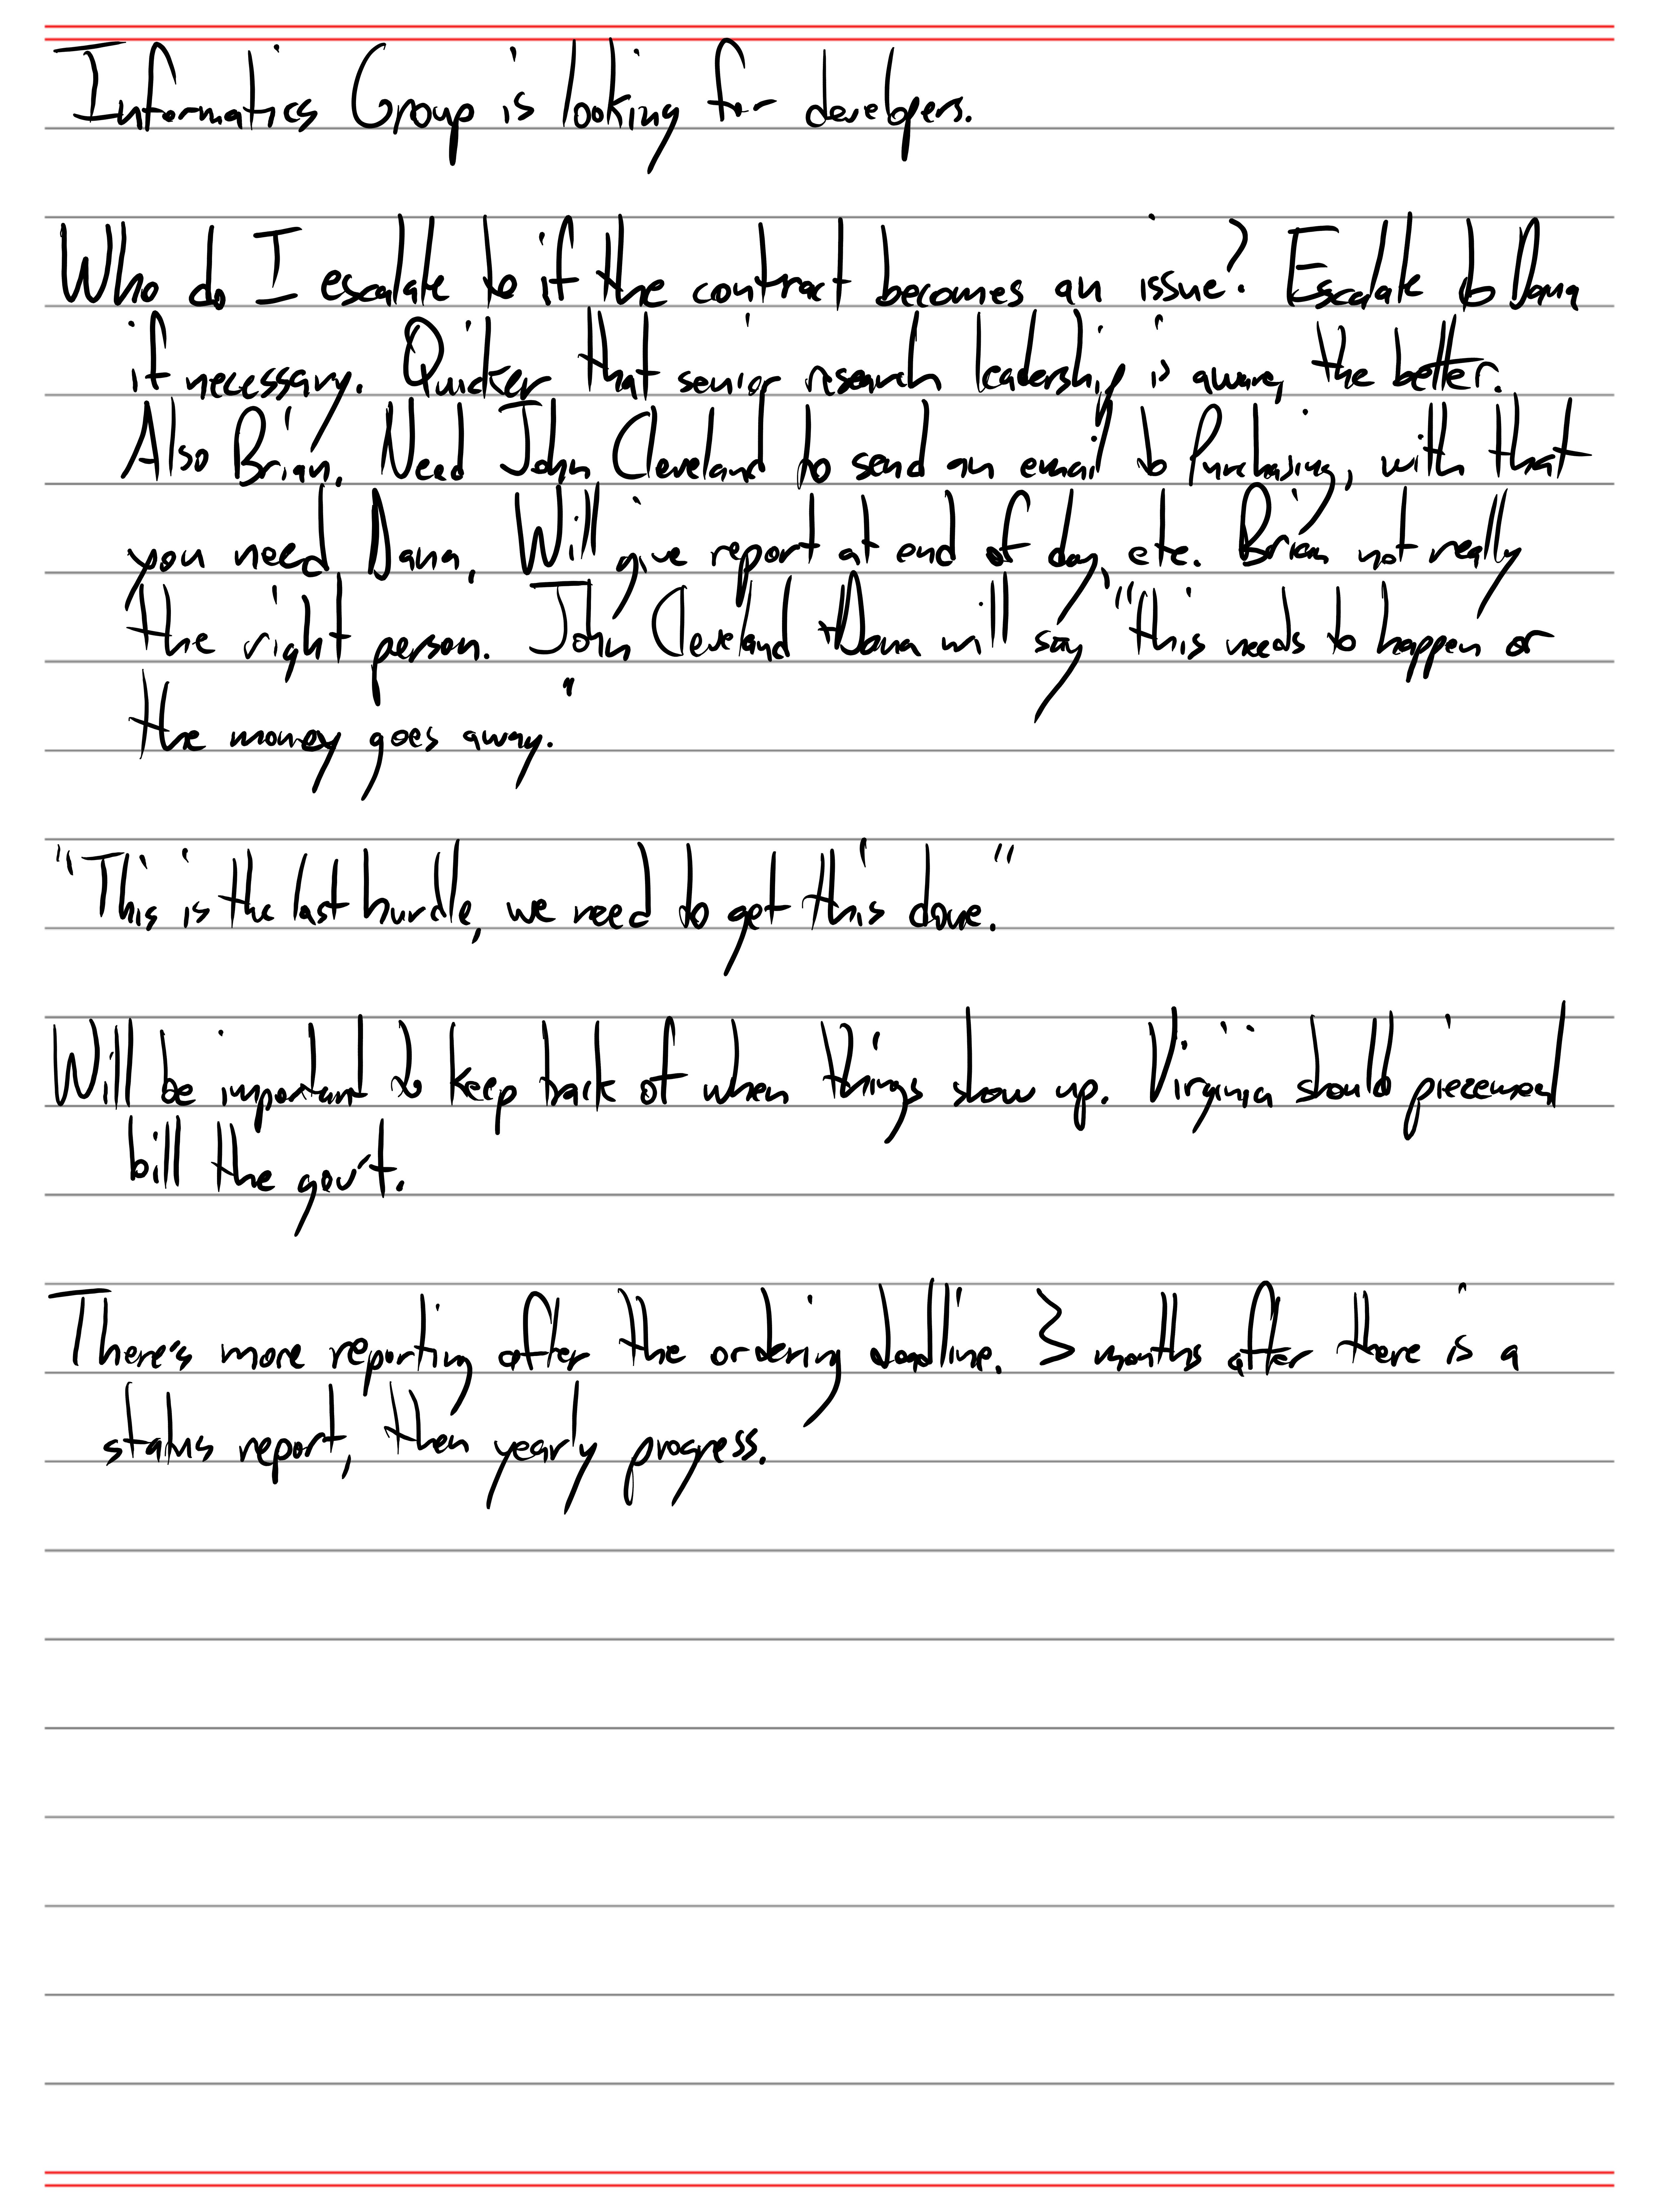 Informatics Group is looking for developers.
Who do I escalate to if the contract becomes an issue? Escalate to Dana
if necessary. Quicker that senior research leadership is aware, the better.
Also Brian. Need John Cleveland to send an email to Purchasing, with that
you need Dana. Will give report at end of day, etc. Brian not really
the right person. John Cleveland + Dana will say "this needs to happen or
the money goes away."
"This is the last hurdle, we need to get this done."
Will be important to keep track of when things show up. Virginia should piecemeal
bill the gov't.
There's more reporting after the ordering deadline. 3 months after there is a
status report, then yearly progress.